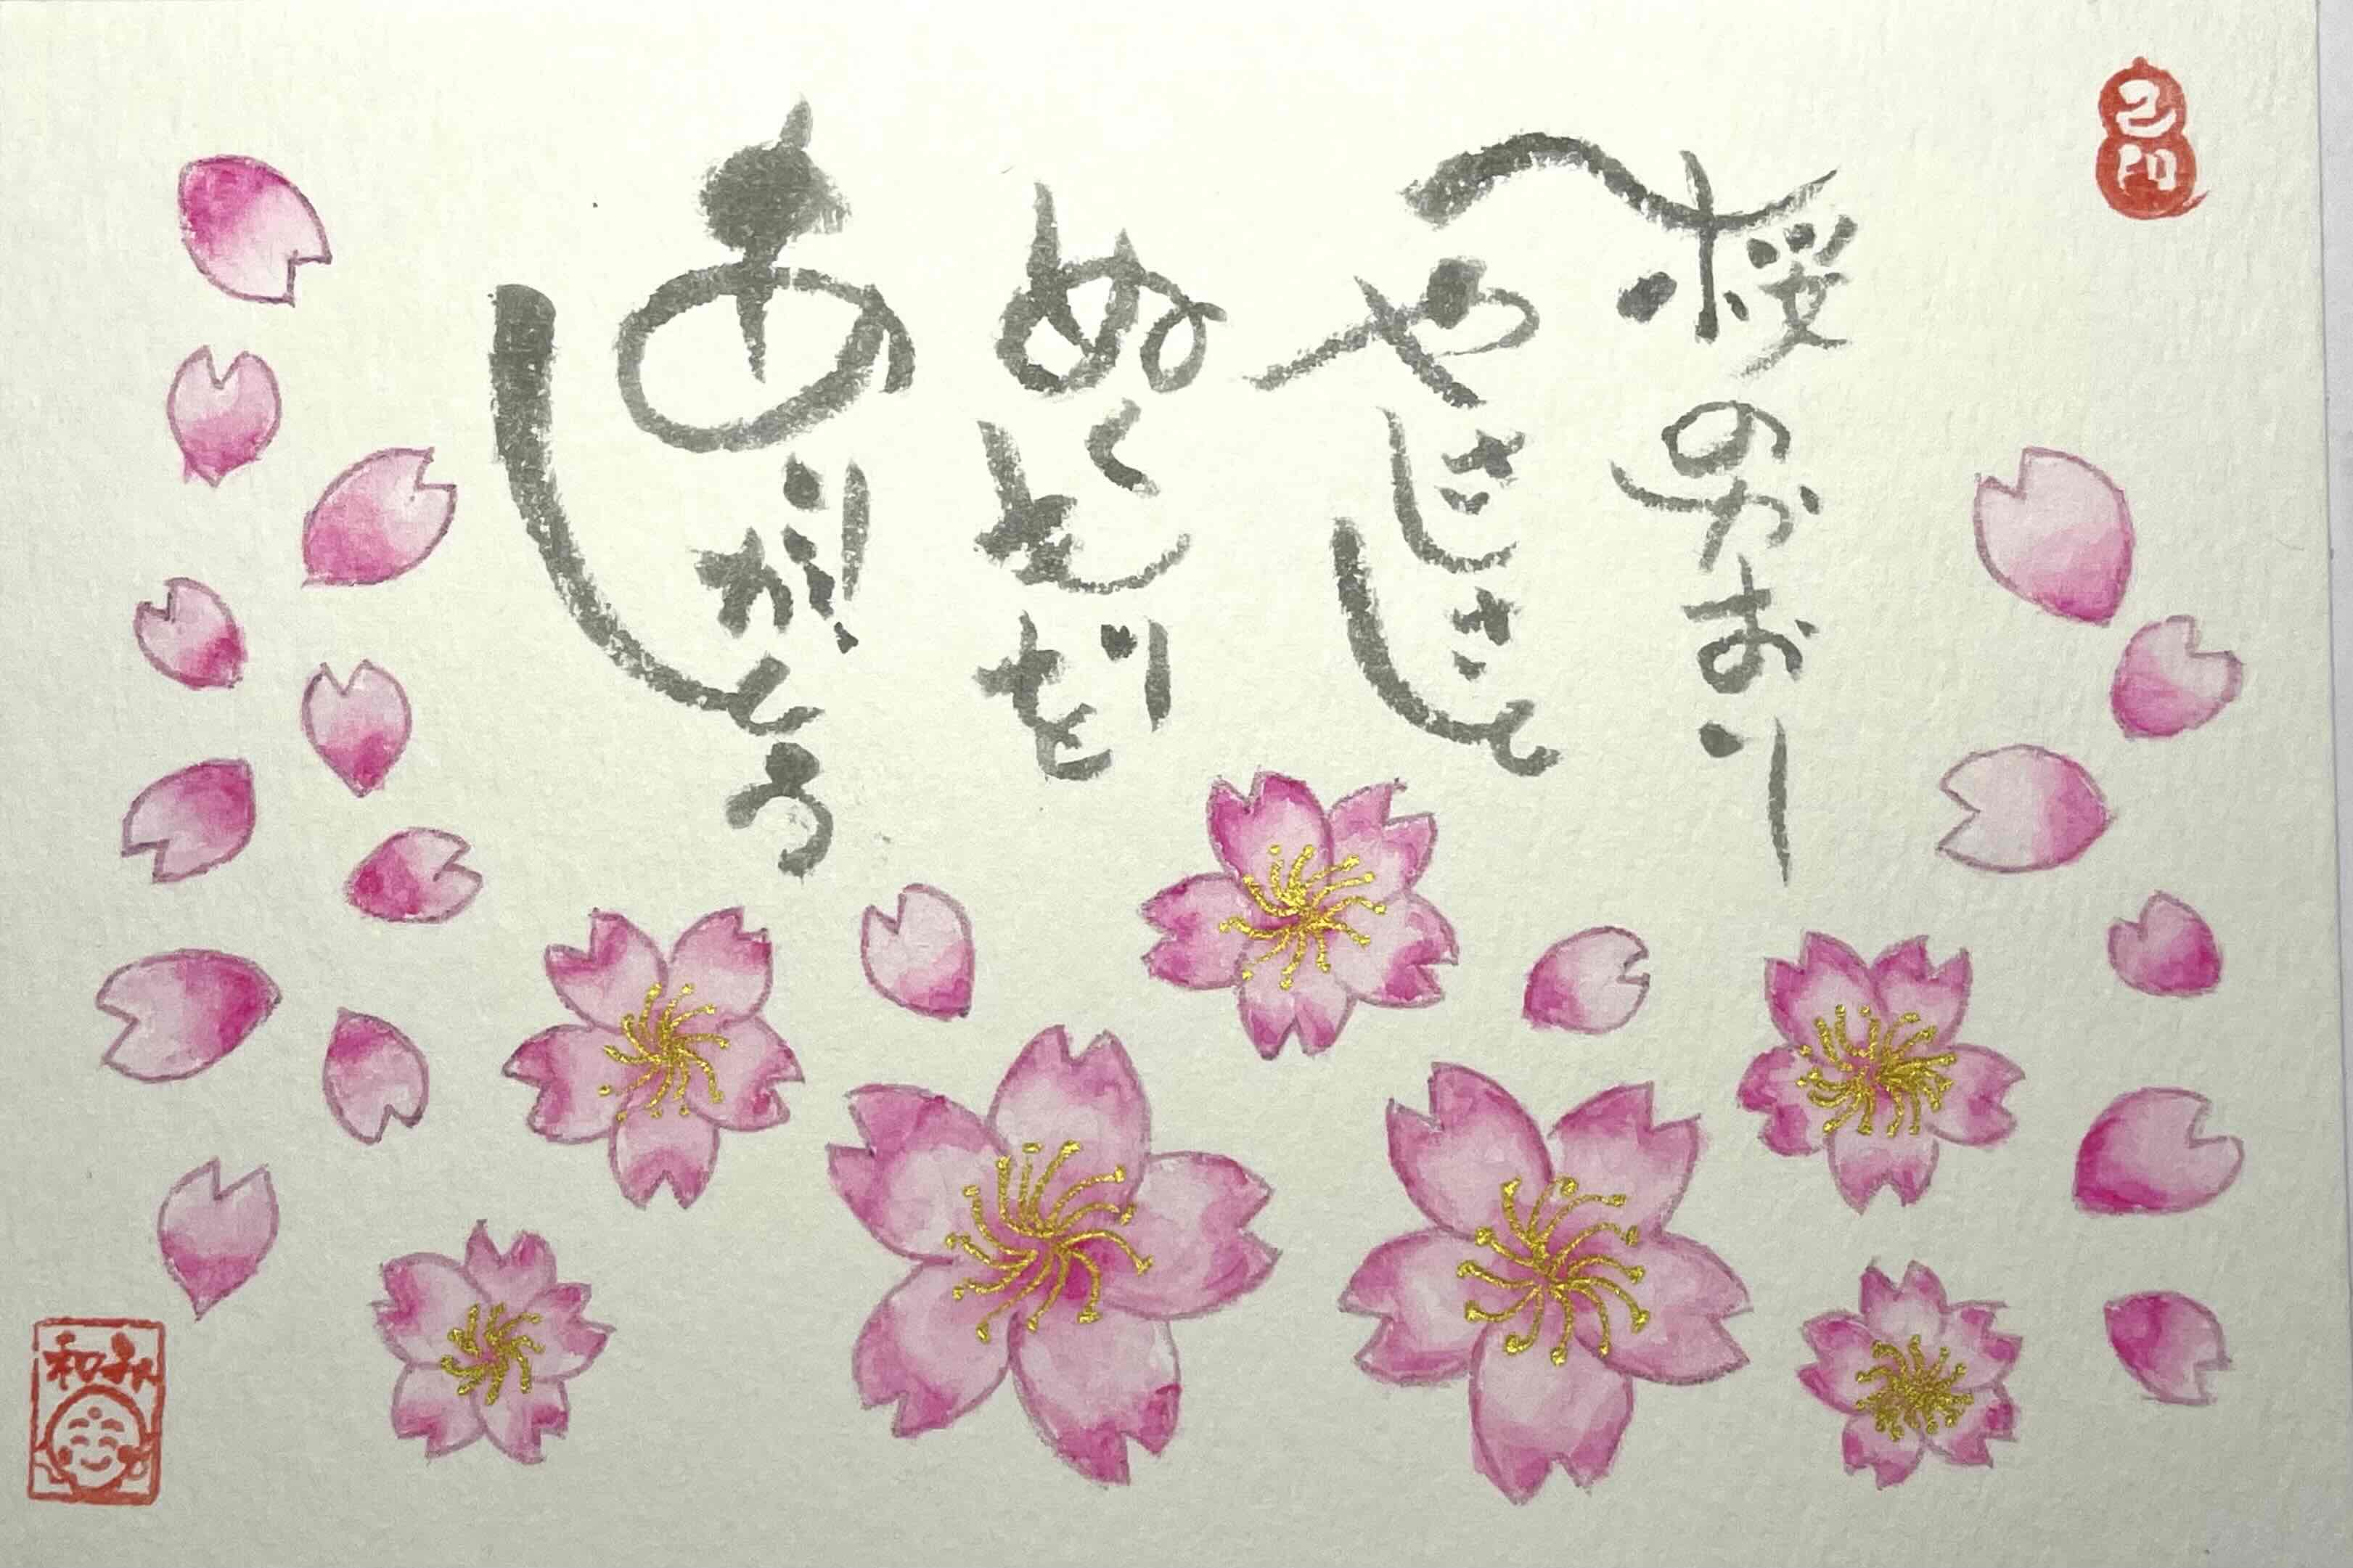 桜のかおり
やさしさと
ぬくもりを
ありがとう
和み